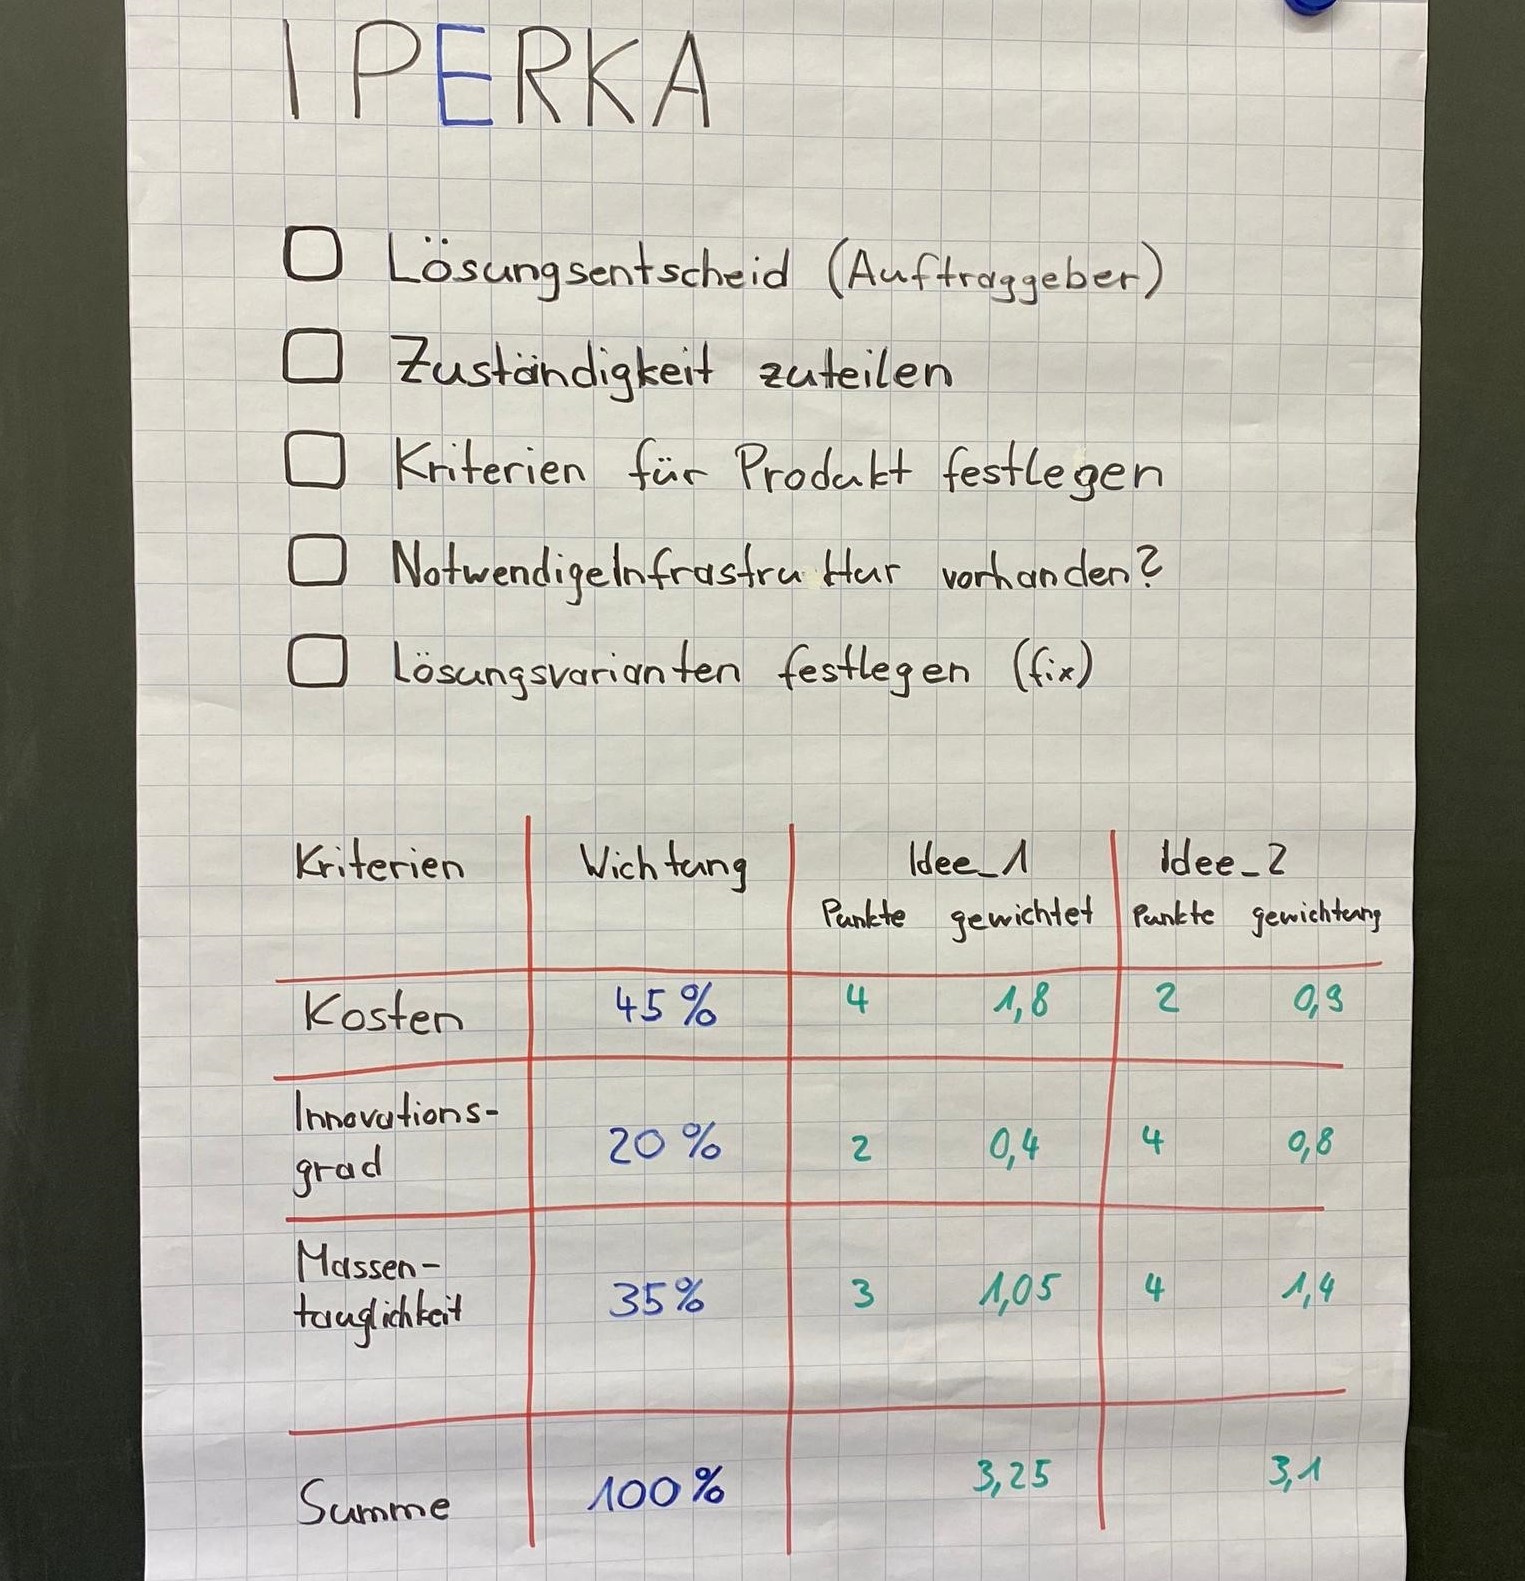 IPERKA
Lösungsentscheid (Auftraggeber)
Zuständigkeit zuteilen
Kriterien für Produkt festlegen
Notwendige Infrastruktur vorhanden?
Lösungsvarianten festlegen (fix)
Kriterien Wichtung Idee_1 Idee_2
Punkte gewichtet Punkte gewichtung
Kosten 45% 4 1,8 2 0,9
Innovations-
grad 20% 2 0,4 4 0,8
Massen-
tauglichkeit 35% 3 1,05 4 1,4
Summe 100% 3,25 3,1